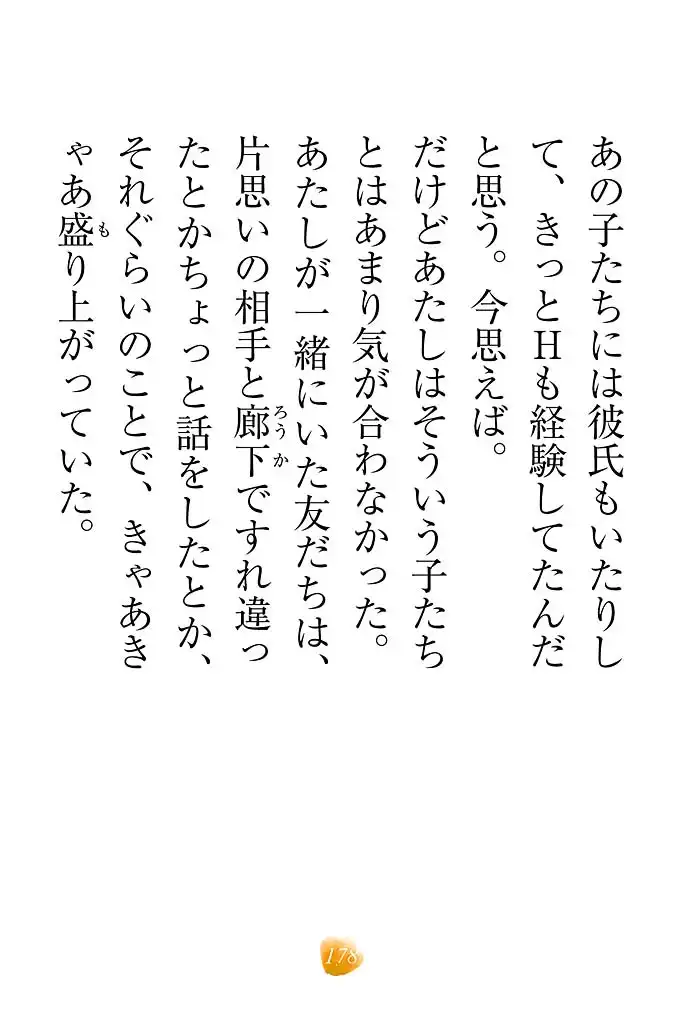 あの子たちには彼氏もいたりし
て、きっとHも経験してたんだ
と思う。今思えば。
だけどあたしはそういう子たち
とはあまり気が合わなかった。
あたしが一緒にいた友だちは、
片思いの相手と廊下ですれ違っ
ろうか
たとかちょっと話をしたとか、
それぐらいのことで、きゃあき
ゃあ盛り上がっていた。
も
178